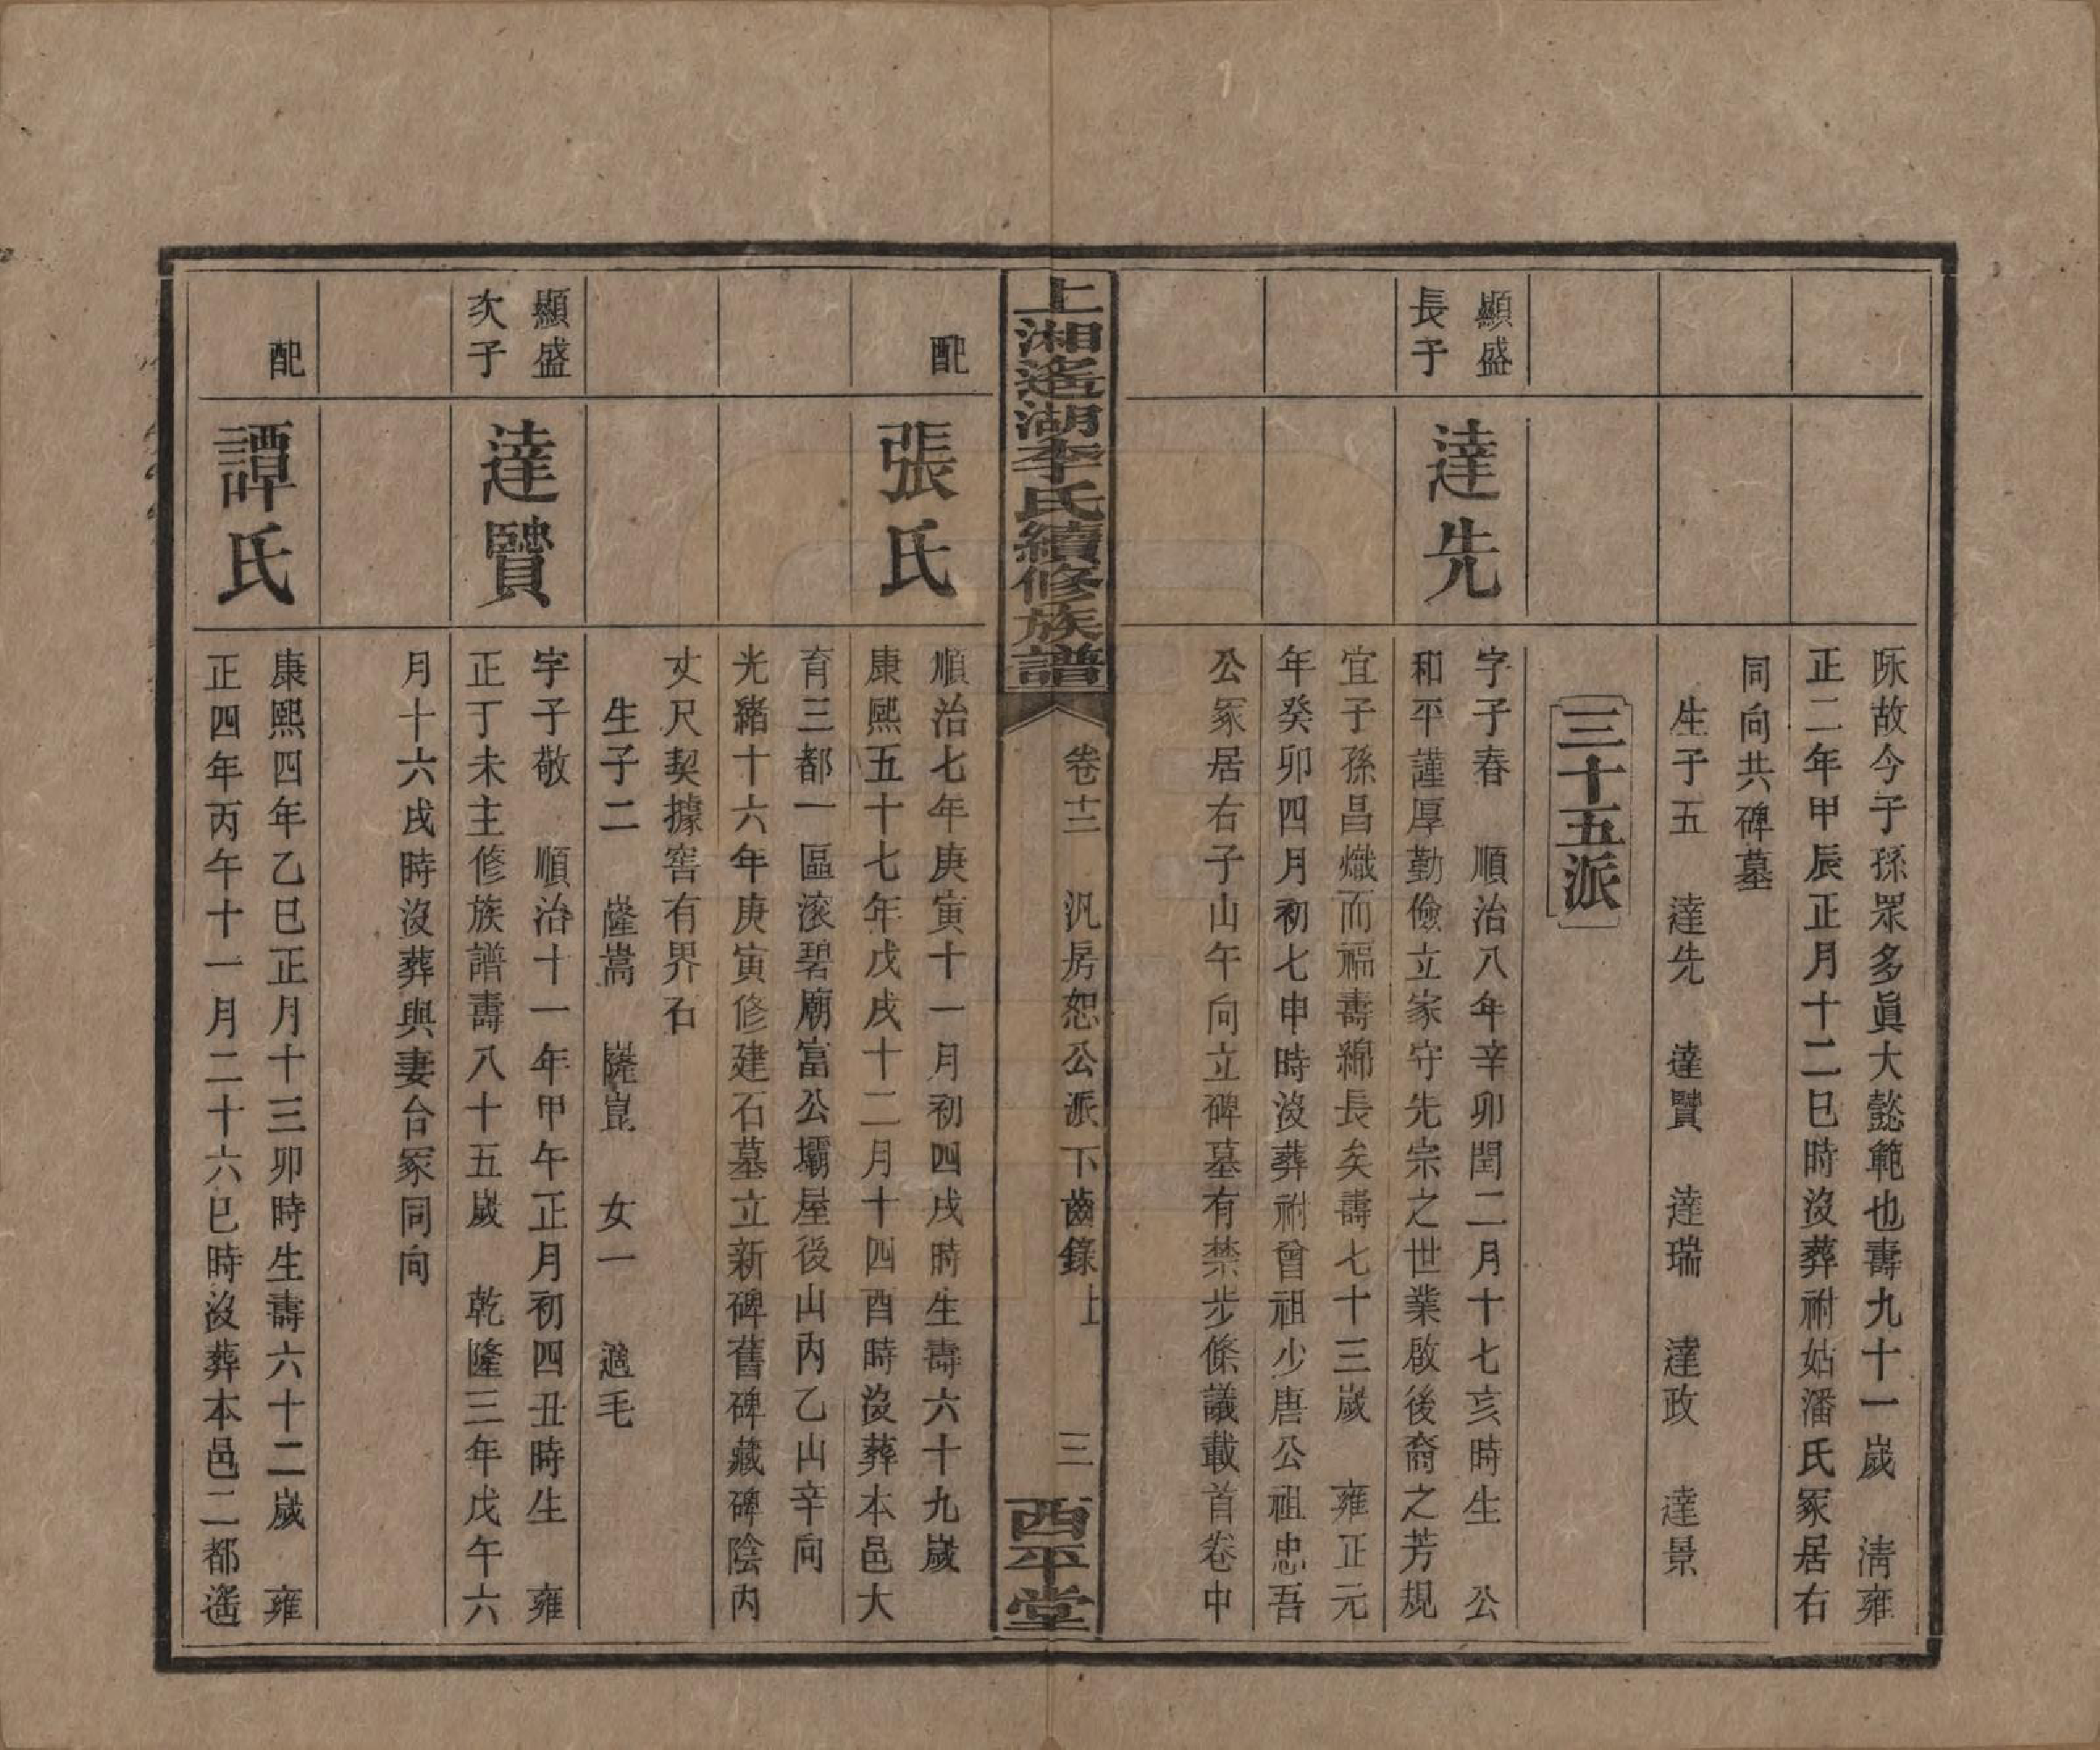 厥故今子孫眾多眞大懿範也壽九十一歲　淸雍
正二年甲辰正月十二巳時沒葬祔姑潘氏冢居右
同向共碑墓
生子五　達先　達賢　達瑞　達政　達景
三十五派
顯盛
長子
達先
字子春　順治八年辛卯閏二月十七亥時生　公
和平謹厚勤儉立家守先宗之世業啟後裔之芳規
宜子孫昌熾而福壽綿長矣壽七十三歲　雍正元
年癸卯四月初七申時沒葬祔曾祖少唐公祖忠吾
公冢居右子山午向立碑墓有禁步條議載首卷中
上湘遙湖李氏續修族譜
卷十三　汎房恕公派下齒錄上
三
西平堂
配
張氏
順治七年庚寅十一月初四戌時生壽六十九歲
康熙五十七年戊戌十二月十四酉時沒葬本邑大
育三都一區滚碧廟富公壩屋後山內乙山辛向
光緒十六年庚寅修建石墓立新碑舊碑藏碑陰內
丈尺契據窖有界石
生子二　嶐嵩　嶐崑　女一　適毛
顯盛
次子
達賢
字子敬　順治十一年甲午正月初四丑時生　雍
正丁未主修族譜壽八十五歲　乾隆三年戊午六
月十六戌時沒葬與妻合冢同向
配
譚氏
康熙四年乙巳正月十三卯時生壽六十二歲　雍
正四年丙午十一月二十六巳時沒葬本邑二都遙